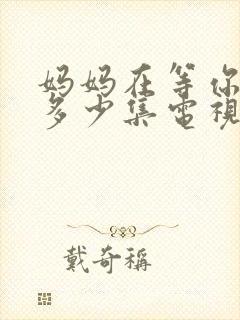 妈妈在等你
多少集电視
戴奇稱